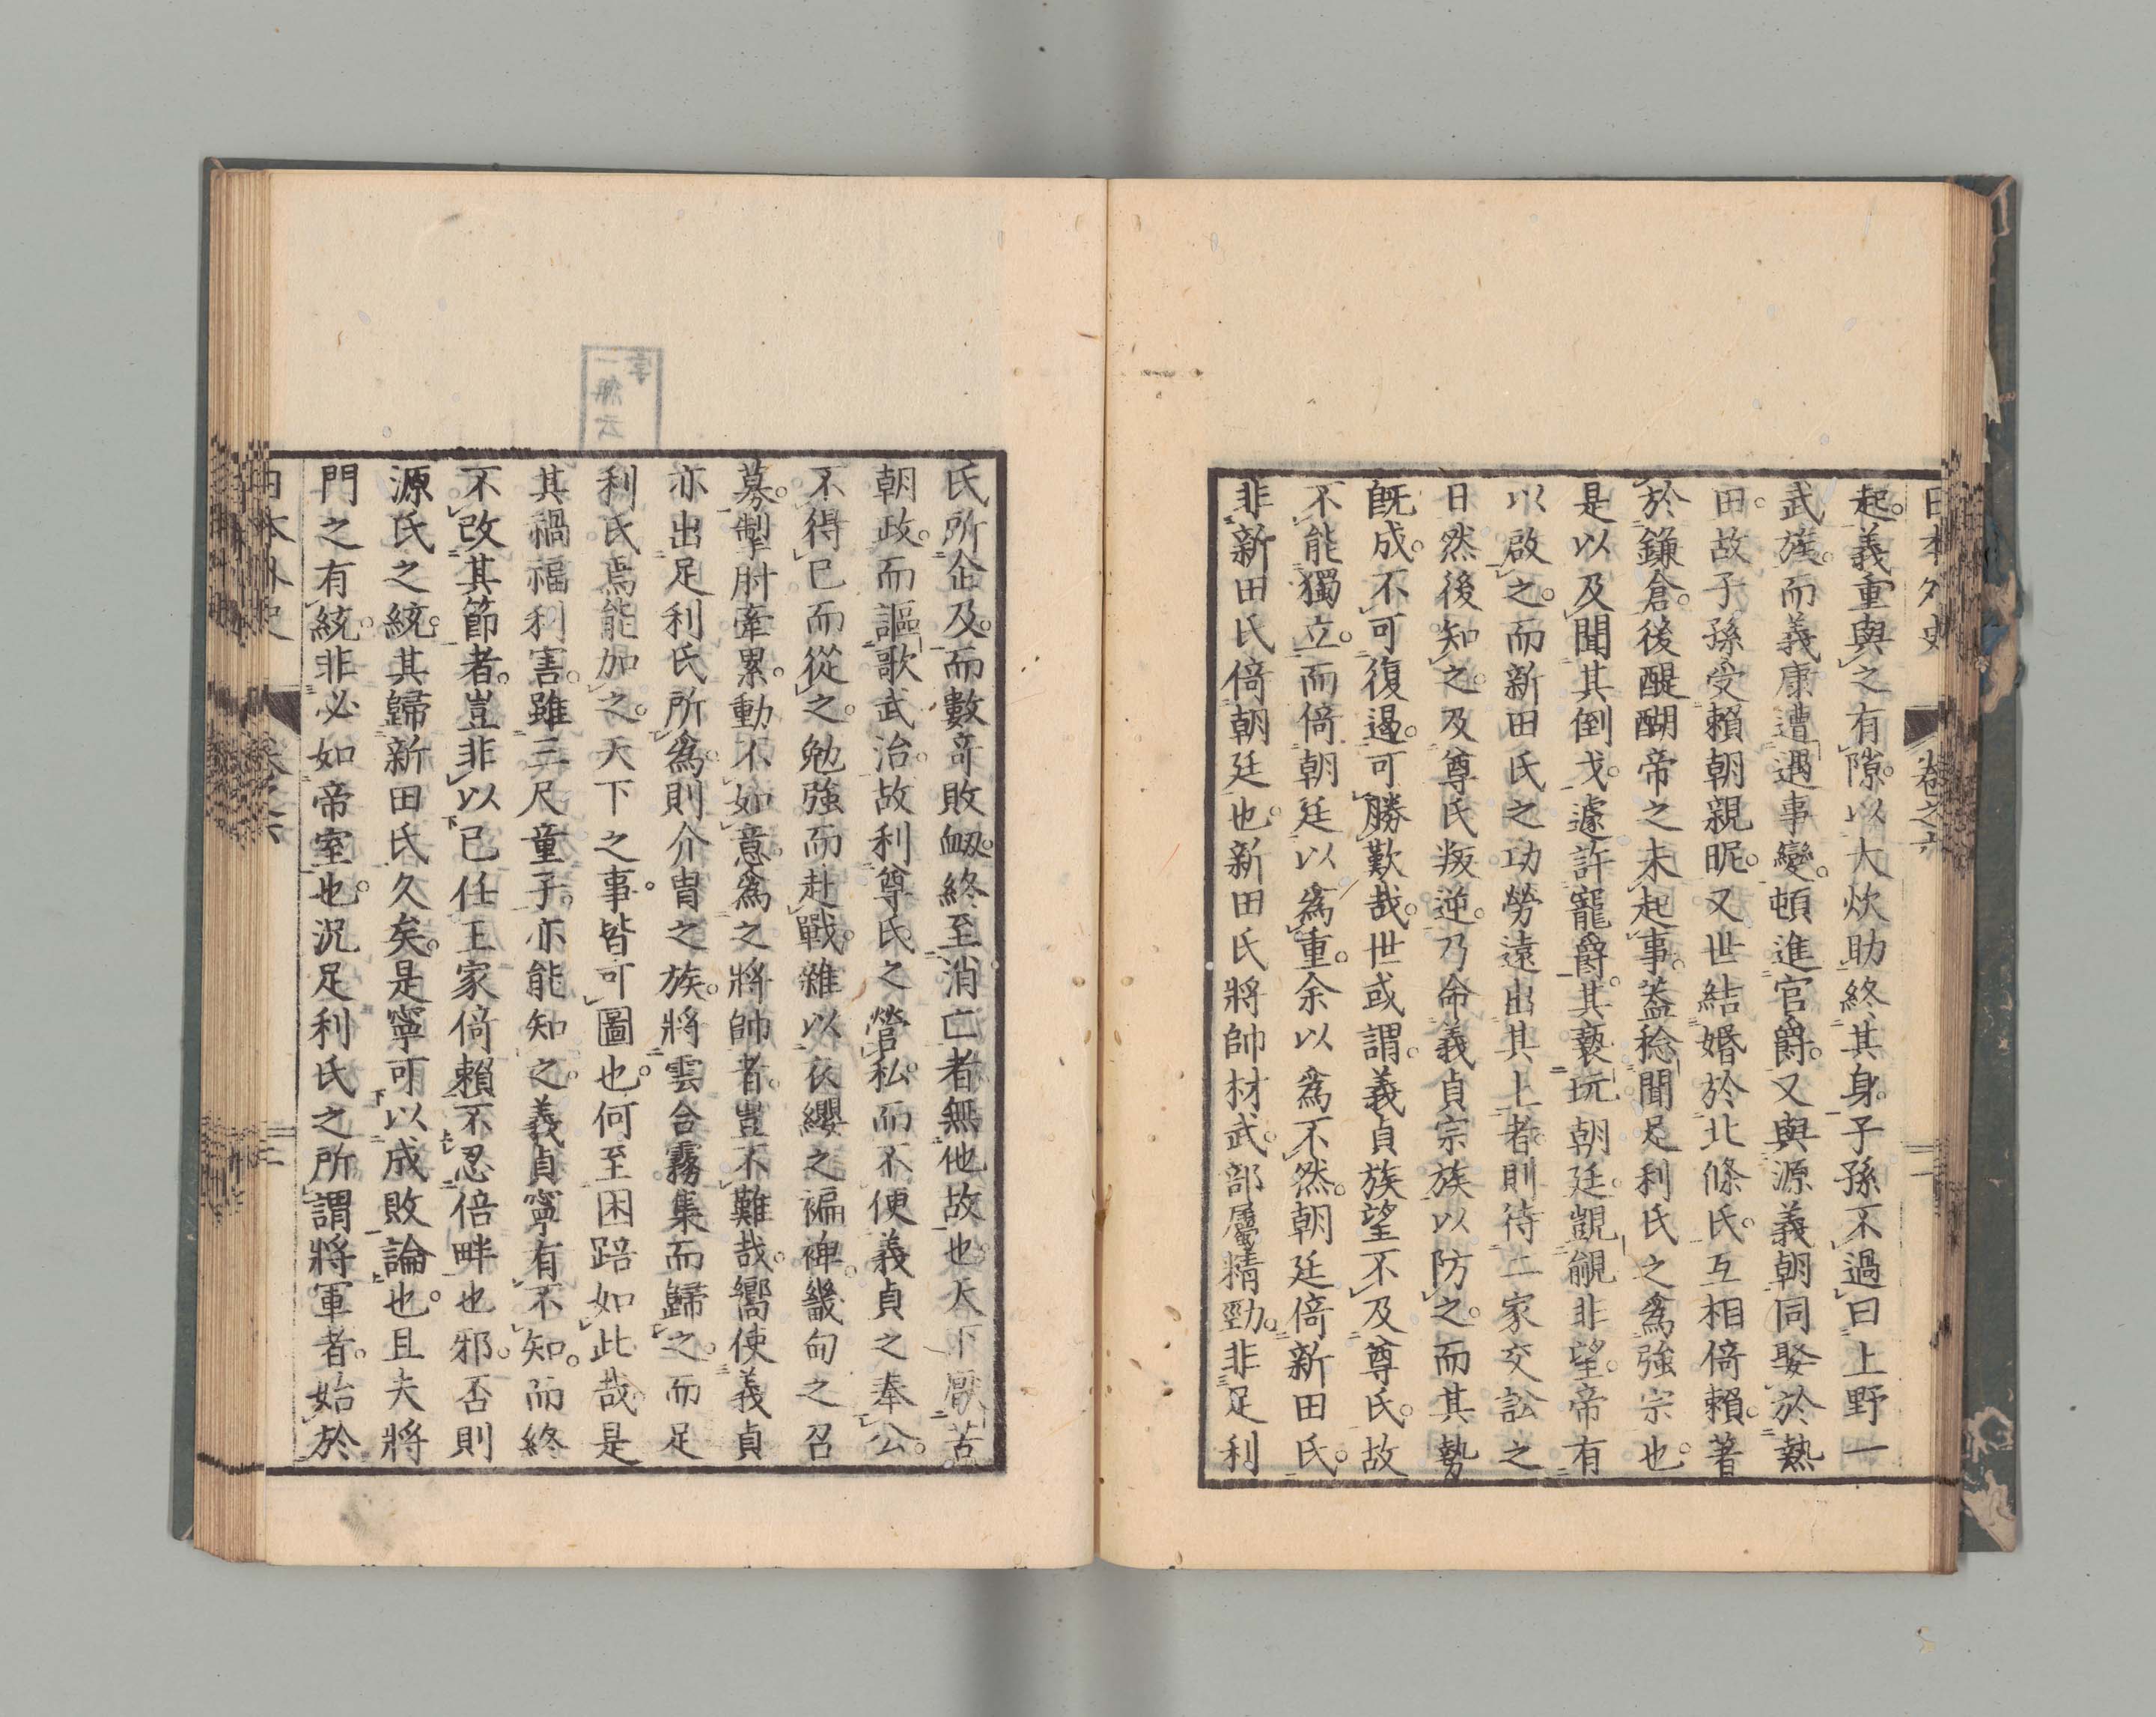 日本外史 卷之六 二
起。義重與之有隙。以大炊助終其身。子孫不過曰上野一
武族。而義康遭遇事變。頓進官爵。又與源義朝同娶於熱
田。故子孫受賴朝親昵。又世結婚於北條氏。互相倚賴。著
於鎌倉。後醍醐帝之未起事。蓋稔聞足利氏之爲強宗也。
是以及聞其倒戈。遽許寵爵。其褻玩朝廷。覬覦非望。帝有
以啟之。而新田氏之功勞遠出其上者。則待二家交訟之
日然後知之。及尊氏叛逆。乃命義貞宗族以防之。而其勢
既成。不可復遏。可勝歎哉。世或謂。義貞族望不及尊氏。故
不能獨立。而倚朝廷以爲重。余以爲不然。朝廷倚新田氏。
非新田氏倚朝廷也。新田氏將帥材武。部屬精勁。非足利
氏所企及。而數奇敗衂。終至消亡者。無他故也。天下厭苦
朝政。而謳歌武治。故利尊氏之營私。而不便義貞之奉公。
不得已而從之。勉強而赴戰。雜以衣纓之褊裨。畿甸之召
募。掣肘牽累。動不如意。爲之將帥者。豈不難哉。嚮使義貞
亦出足利氏所爲。則介冑之族。將雲合霧集而歸之。而足
利氏焉能加之。天下之事。皆可圖也。何至困踣如此哉。是
其禍福利害。雖三尺童子。亦能知之。義貞寧有不知。而終
不改其節者。豈非以已任王家倚賴不忍倍畔也邪。否則
源氏之統。其歸新田氏久矣。是寧可以成敗論也。且夫將
門之有統。非必如帝室也。況足利氏之所謂將軍者。始於
日本外史 卷之六 三